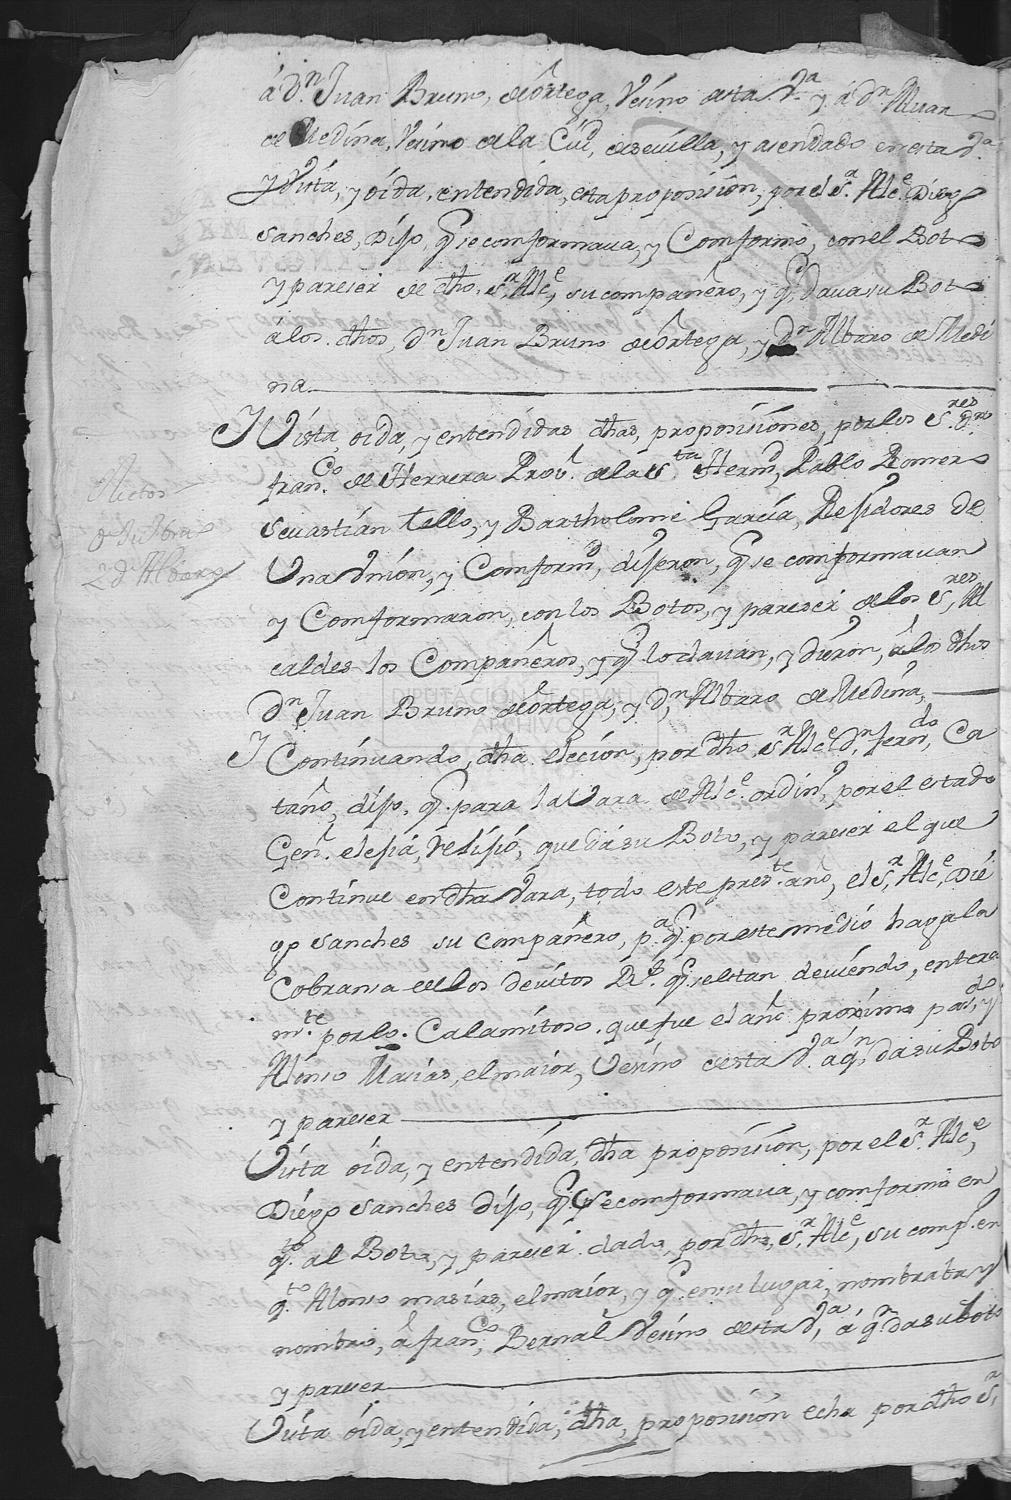 á Dn Juan Bruno, de Ortega, Vesino desta Va y á Dn Alvaro
de Medina, Vesino de la Ciud, de Sevilla, y asendado en esta Va
y Vista, y oída, entendida, esta proposisión, por el Sr Alce Diego
Sanches, Dijo, q se comformava, y Comformó, con el Boto
y pareser de dho, Sr Alce, su compañero, y q, dava su Boto
á los dhos, Dn Juan Bruno de Ortega, y Dn Albaro de Medi
na
Y Vista, oida, y entendidas dhas, proposisiónes, por los Sres Dn
franco de Herrera Prov de la Sta Hermd, Pablo Romero
Sevastián tello, y Bartholome Garsía, Rejidores de
Una Vnión, y Comformd, dijeron, q se comformavan
y Comformaron, con los Botos, y pareser de los Sres, Al
caldes los Compañeros, y q lo davan, y diéron, á los dhos
Dn Juan Bruno de Ortega, y Dn Albaro de Medina,
DIPUTACIÓN DE SEVILLA
ARCHIVO
Y Continuando, dha elecion, por dho, Sr Alce Dn ferndo, Ca
taño, dijo, q para la Vara de Alce ordino, por el estado
Gen, que dá su Boto, y pareser el que
Continue en dha Vara, todo este preste año, el Sr Alce, Dié
go Sanches su compañero, pa q por este medio haga la
Cobransa de los devitos Rs q se estan deviendo, entera
mte por lo Calamitoso que fue el año próximo pasdo, y
Alonso Masias, el maior, Vesino desta Va á qn da su Boto
y pareser
Vista oida, y entendida, dha proposisión, por el Sr Alce,
Diégo Sanches dijo, q se comformava, y comformó en
qto al Boto, y pareser dado, por dho, Sr Alce, su comp en
qto Alonso masias, el maior, y q en su lugar, nombrava y
nombró, á franco, Bernal Vesino desta Va, á qn da su boto
y pareser
Vista oida, y entendida, dha, proposisión echa por dho Sr